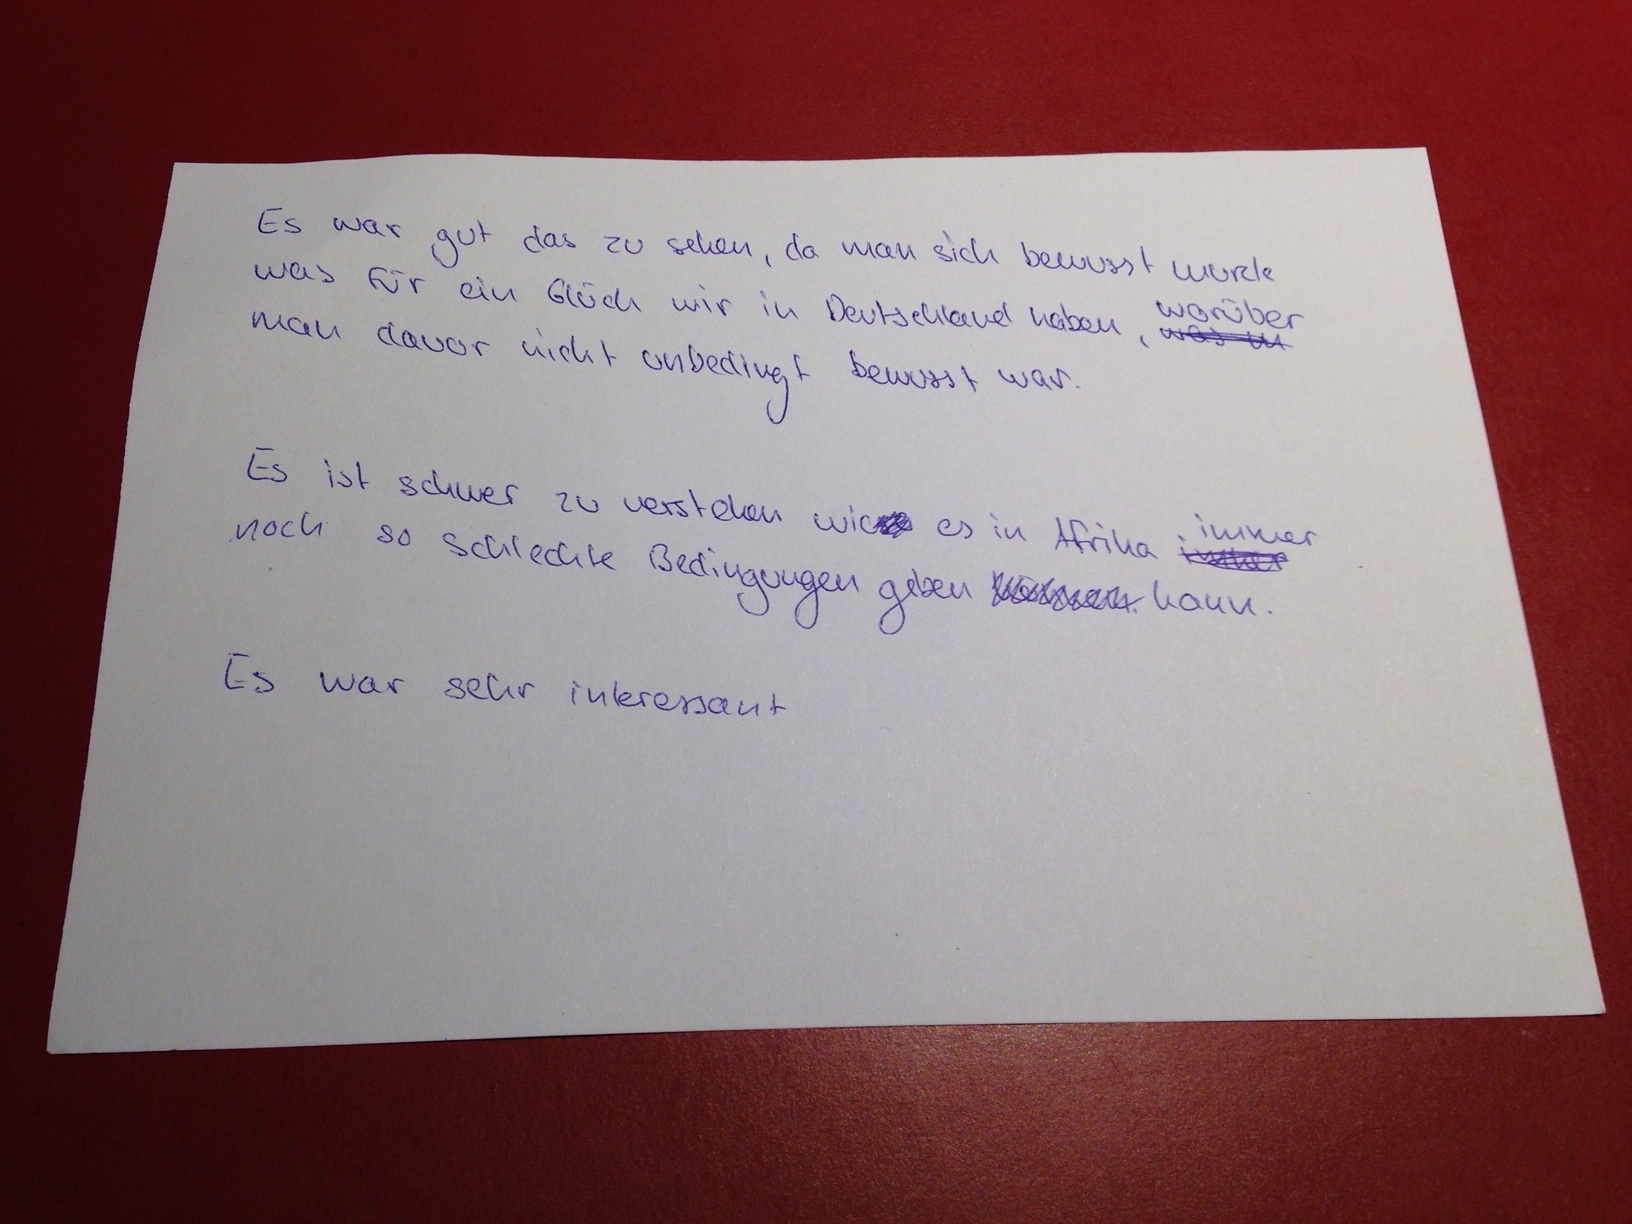 Es war gut das zu sehen, da man sich bewusst wurde
was für ein Glück wir in Deutschland haben, worüber
man davor nicht unbedingt bewusst war.
Es ist schwer zu verstehen wie es in Afrika immer
noch so schlechte Bedingungen geben kann.
Es war sehr interessant